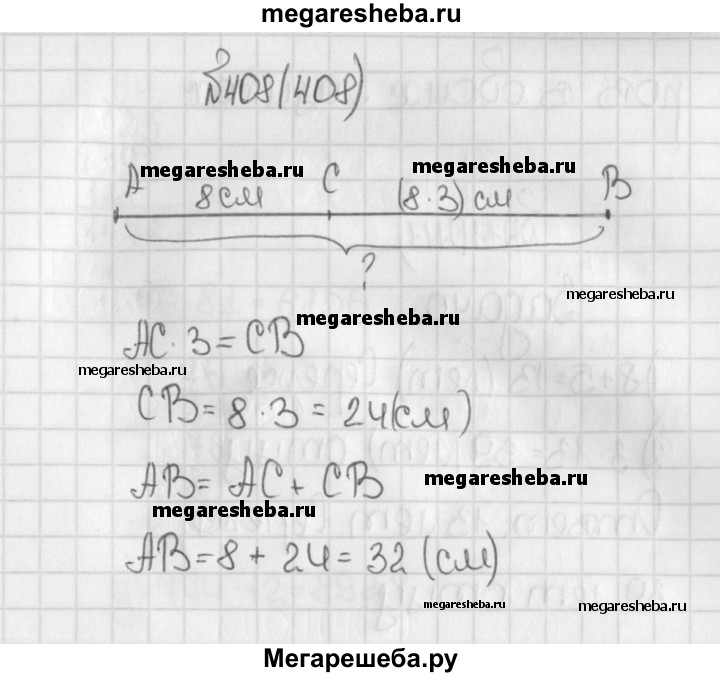 megaresheba.ru
№408(408)
A megaresheba.ru C megaresheba.ru B
8 см (8·3) см
?
megaresheba.ru
megaresheba.ru
AC·3=CB
megaresheba.ru
CB=8·3=24(см)
AB=AC+CB
megaresheba.ru
megaresheba.ru
AB=8+24=32 (см)
megaresheba.ru
megaresheba.ru
Мегарешеба.ру